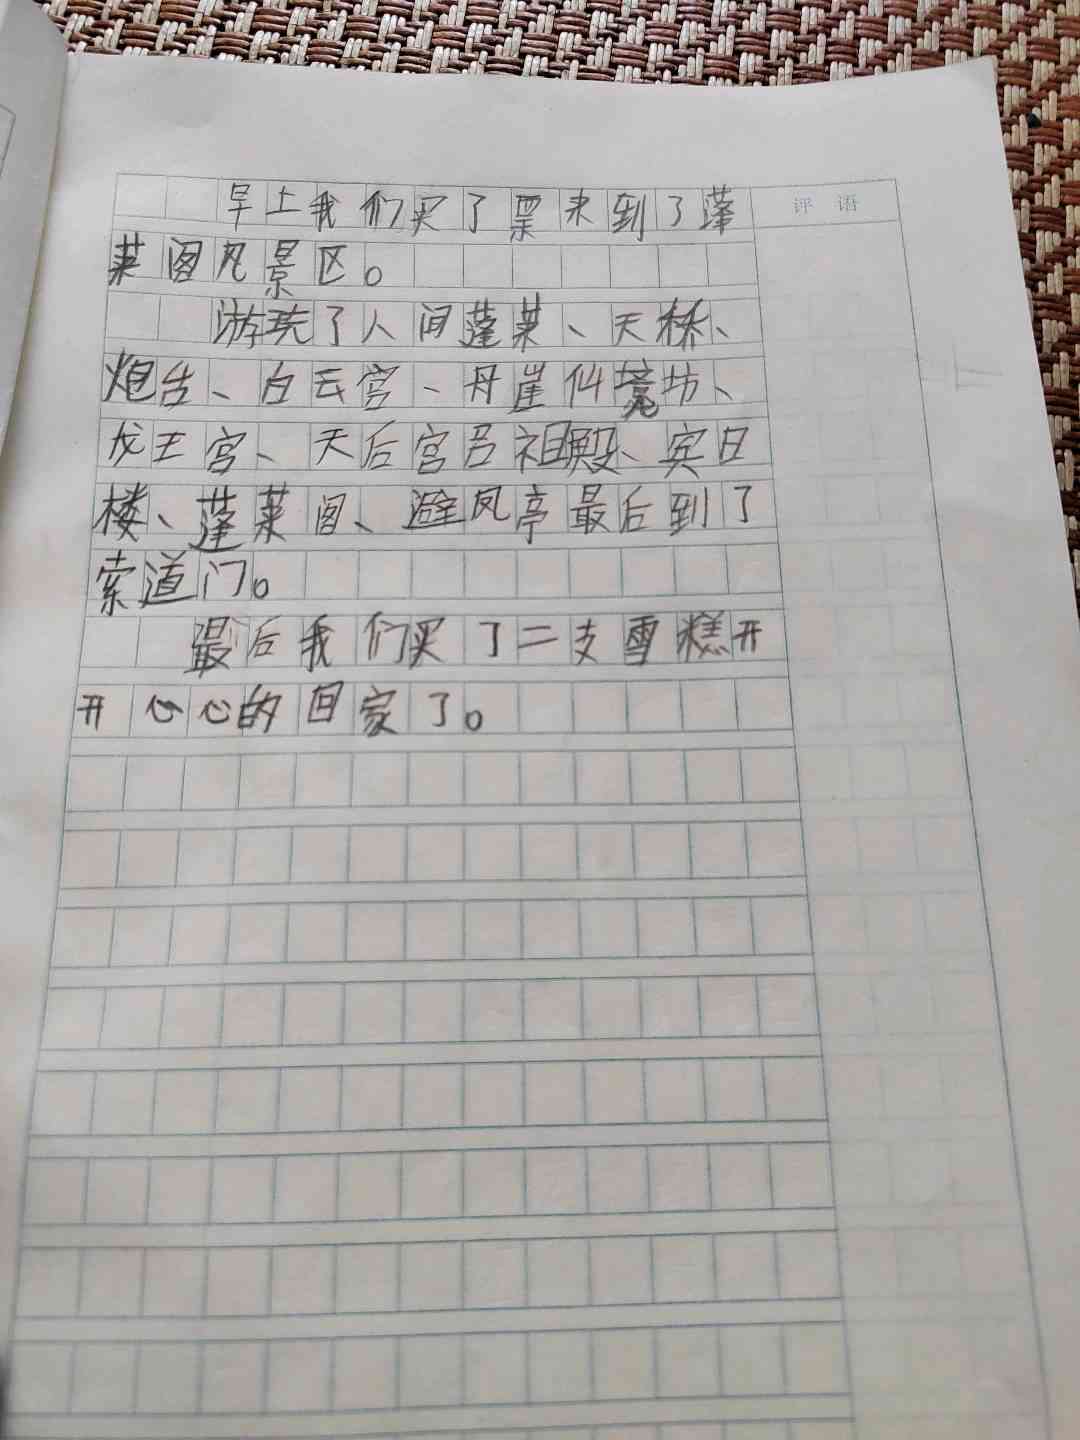 早上我们买了票来到了蓬
评语
莱阁风景区。
游玩了人间蓬莱、天桥、
炮台、白云宫、丹崖仙境坊、
龙王宫、天后宫吕祖殿、宾日
楼、蓬莱阁、避风亭最后到了
索道门。
最后我们买了二支雪糕开
开心心的回家了。